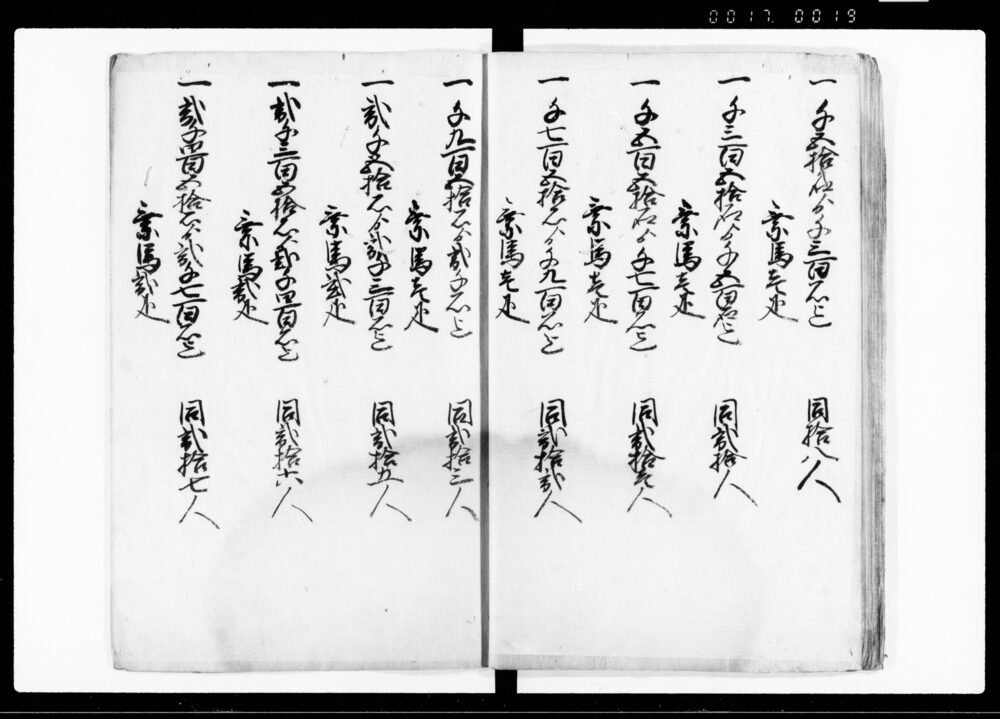 0017. 0019
一 千五拾石ゟ千三百石迄 同拾八人
乗馬壱疋
一 千三百五拾石ゟ千五百石迄 同弐拾人
乗馬壱疋
一 千五百五拾石ゟ千七百石迄 同弐拾壱人
乗馬壱疋
一 千七百五拾石ゟ千九百石迄 同弐拾弐人
乗馬壱疋
一 千九百五拾石ゟ弐千石迄 同弐拾三人
乗馬壱疋
一 弐千五拾石ゟ弐千三百石迄 同弐拾五人
乗馬弐疋
一 弐千三百五拾石ゟ弐千四百石迄 同弐拾六人
乗馬弐疋
一 弐千四百五拾石ゟ弐千七百石迄 同弐拾七人
乗馬弐疋